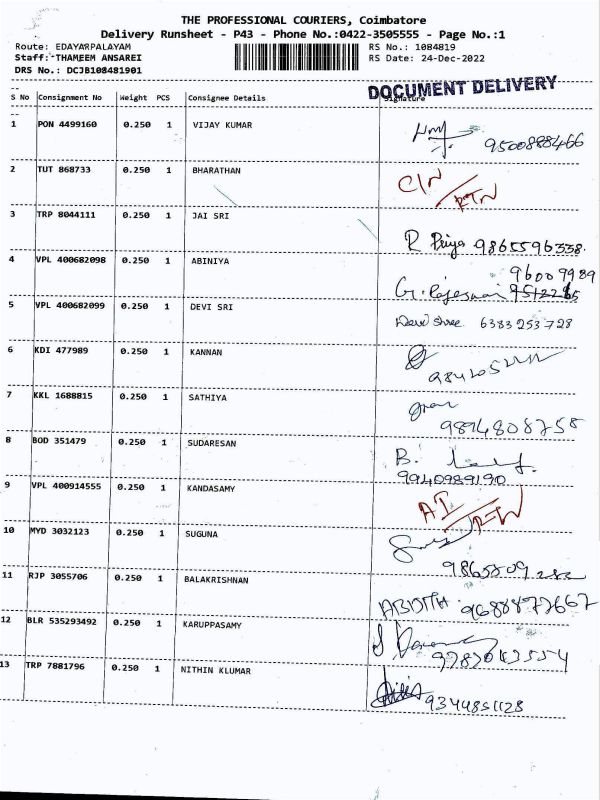 THE PROFESSIONAL COURIERS, Coimbatore
Delivery Runsheet - P43 - Phone No.:0422-3505555 - Page No.:1
Route: EDAYARPALAYAM RS No.: 1084819
Staff: THAMEEM ANSAREI RS Date: 24-Dec-2022
DRS No.: DCJB108481901
DOCUMENT DELIVERY
S No Consignment No Weight PCS Consignee Details Signature
1 PON 4499160 0.250 1 VIJAY KUMAR
9500888466
2 TUT 868733 0.250 1 BHARATHAN
C/N / RTN
3 TRP 8044111 0.250 1 JAI SRI
R Priya 9865596338.
4 VPL 400682098 0.250 1 ABINIYA
96009989
G. Rajeswari
5 VPL 400682099 0.250 1 DEVI SRI
Devi shree 6383253728
6 KDI 477989 0.250 1 KANNAN
7 KKL 1688815 0.250 1 SATHIYA
9894808758
8 BOD 351479 0.250 1 SUDARESAN
B.
9940989190
9 VPL 400914555 0.250 1 KANDASAMY
10 MYD 3032123 0.250 1 SUGUNA
11 RJP 3055706 0.250 1 BALAKRISHNAN
9688877667
12 BLR 535293492 0.250 1 KARUPPASAMY
13 TRP 7881796 0.250 1 NITHIN KLUMAR
9344851128